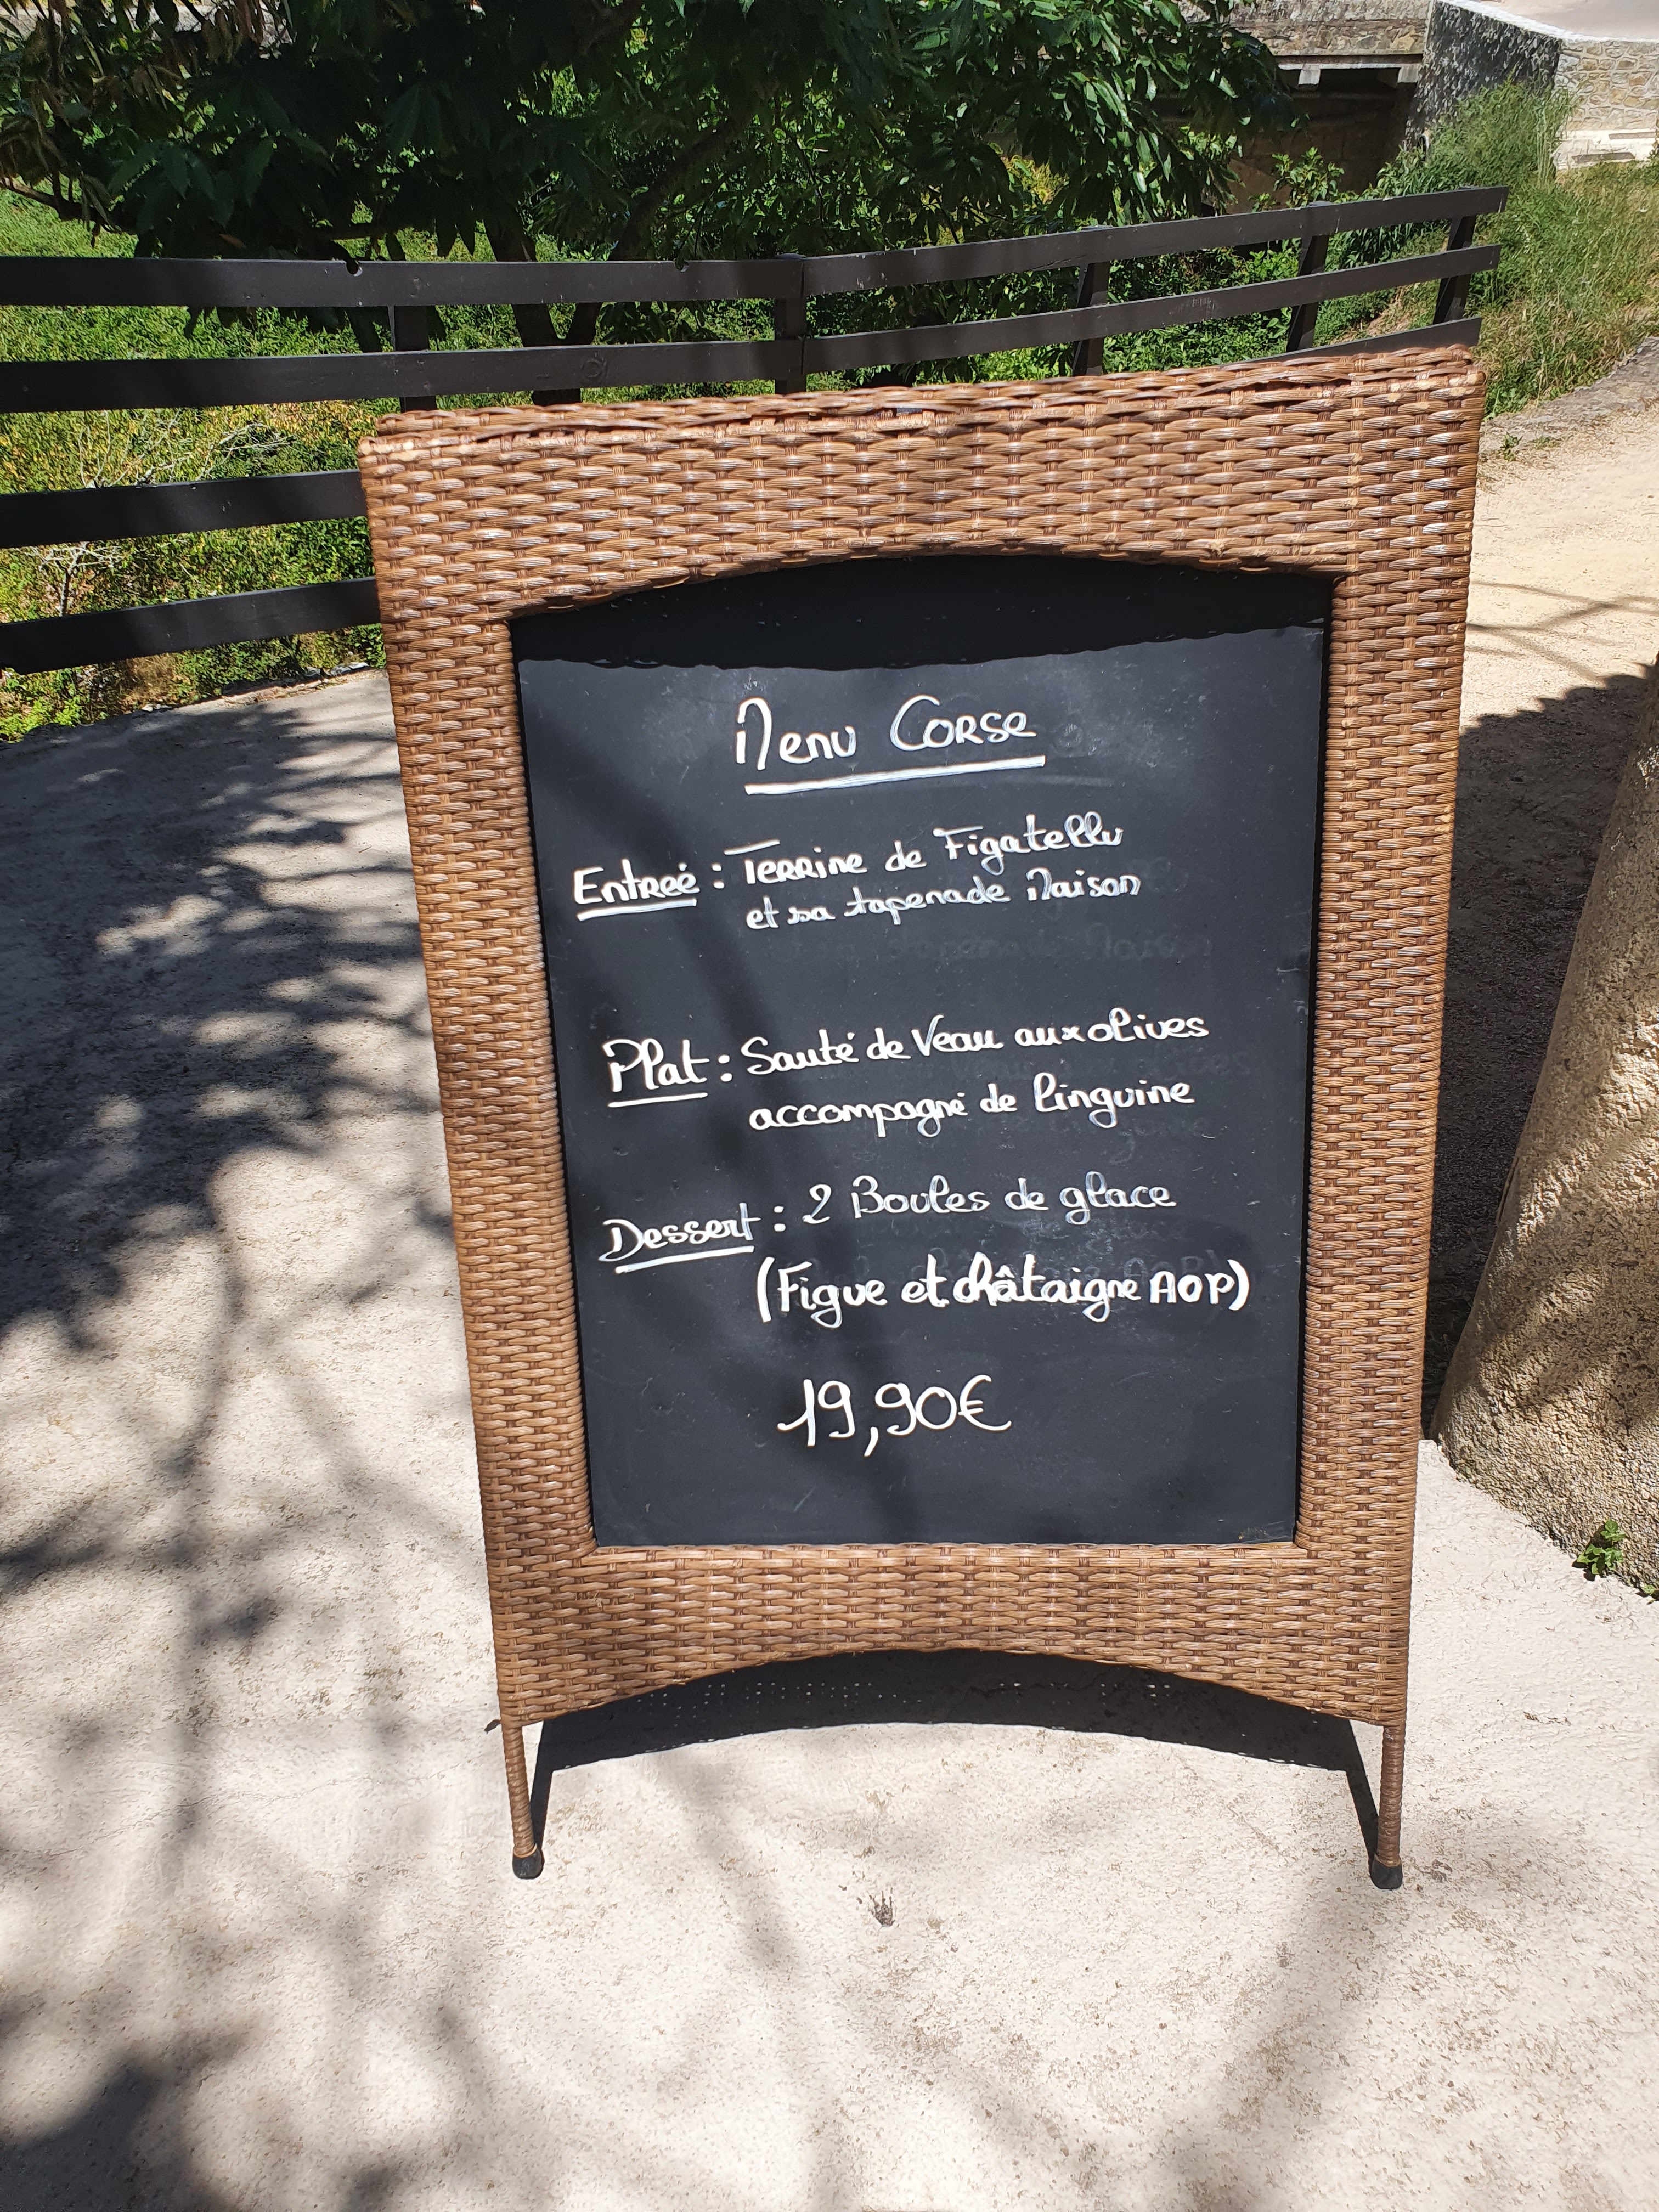 Menu Corse
Entreé : Terrine de Figatellu
et sa tapenade Maison
Plat : Sauté de Veau aux olives
accompagné de linguine
Dessert : 2 Boules de glace
(Figue et châtaigne AOP)
19,90€